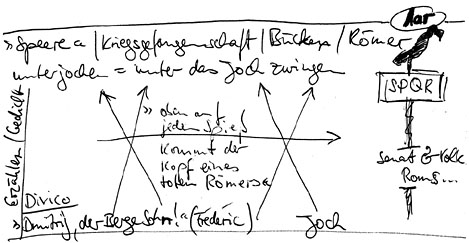 Aar
» Speere « / Kriegsgefangenschaft / Bücken / Römer
unterjochen = unter das Joch zwingen
SPQR
» oben auf
jeden Spieß
kommt der
Kopf eines
toten Römers«
Senat & Volk
Roms...
Erzählen / Gedicht
Divico
der Berge Joch